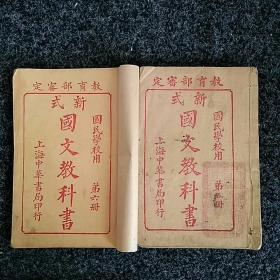 教育部審定
新式
國民學校用
國文教科書
第六册
上海中華書局印行
教育部審定
新式
國民學校用
國文教科書
第
册
上海中華書局印行